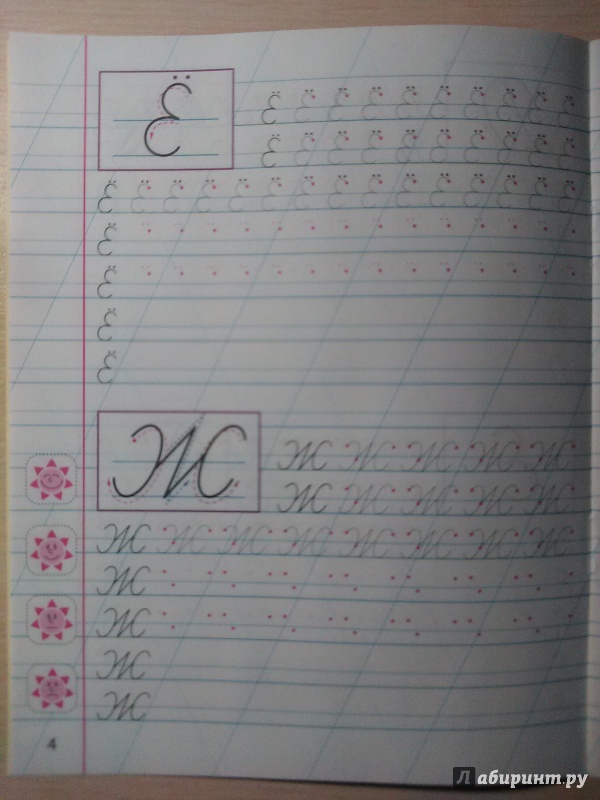 Ё
Ё Ё Ё Ё Ё Ё Ё Ё Ё Ё
Ё Ё Ё Ё Ё Ё Ё Ё Ё Ё
Ё Ё Ё Ё Ё Ё Ё Ё Ё Ё Ё Ё Ё Ё Ё
Ё
Ё
Ё
Ё
Ж
Ж Ж Ж Ж Ж
Ж Ж Ж Ж Ж
Ж Ж Ж Ж Ж Ж Ж Ж
Ж
Ж
Ж
Ж
4
Лабиринт.ру